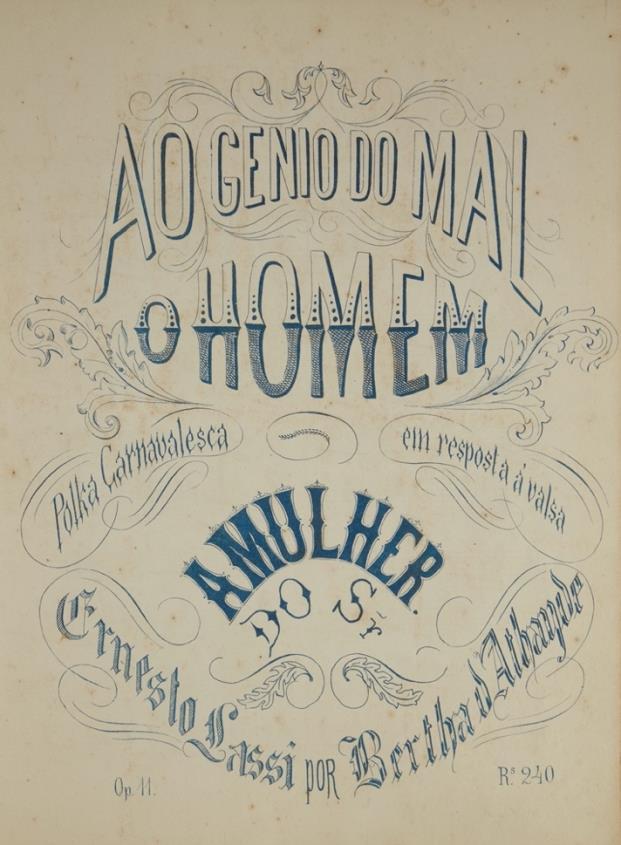 AO GENIO DO MAL
O HOMEM
Polka Carnavalesca em resposta á valsa
A MULHER.
DO Sr.
Ernesto Lassi por Bertha d'Athayde
Op. 11. Rs. 240